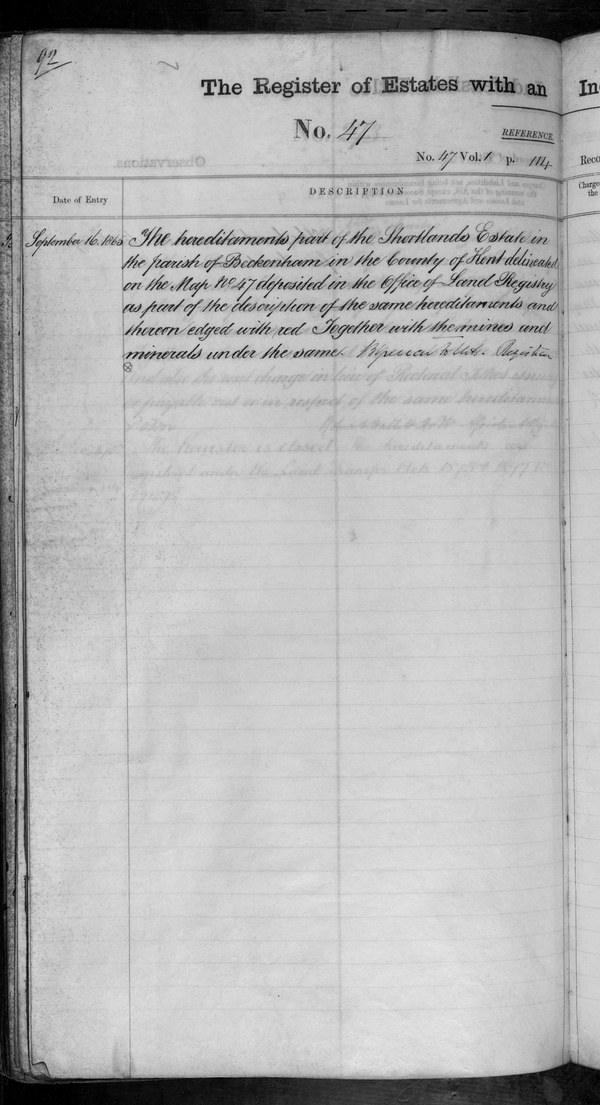 92
The Register of Estates with an
In
No. 47
REFERENCE.
No. 47 Vol. 1 p. 114.
Date of Entry
DESCRIPTION
September 16. 1863
The hereditaments part of the Shortlands Estate in
the parish of Beckenham in the County of Kent delineated
on the Map No. 47 deposited in the Office of Land Registry
as part of the description of the same hereditaments and
thereon edged with red Together with the mines and
minerals under the same.
and also the rent charge in lieu of Rectorial Tithes
or payable out of or in respect of the same hereditaments
The register is closed. The hereditaments
registered under the Land Transfer Acts 1875 & 1897
Reco
Charge
the